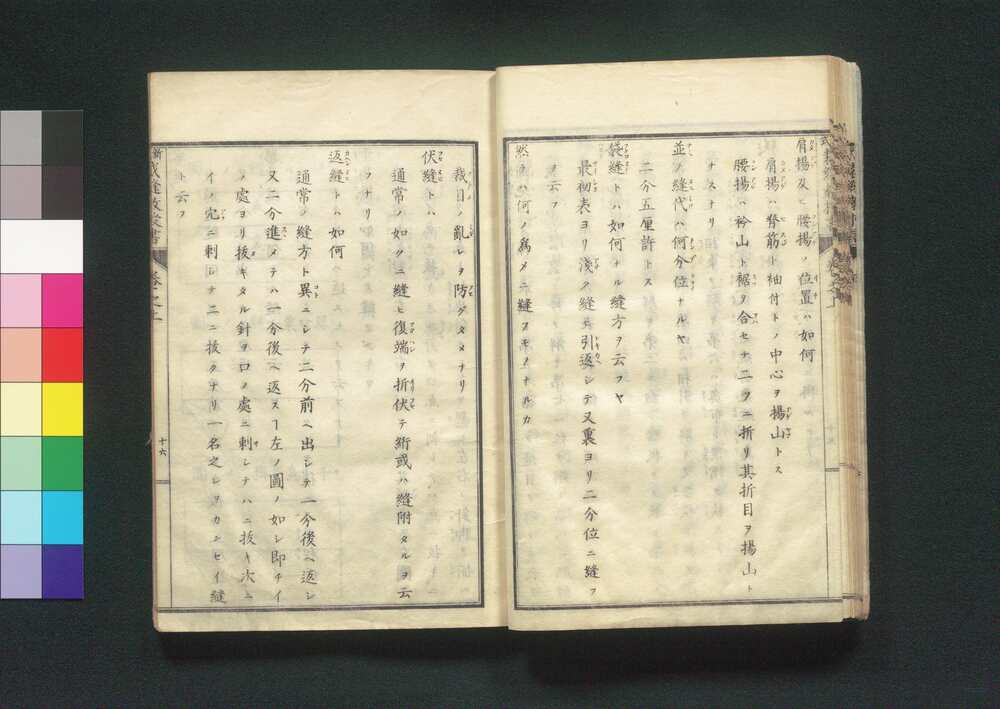 肩揚及ヒ腰揚ノ位置ハ如何
肩揚ハ脊筋ト袖付トノ中心ヲ揚山トス
腰揚ハ衿山ト裾ヲ合セテ二ツニ折リ其折目ヲ揚山ト
ナスナリ
並ノ縫代ハ何分位ナルヤ
二分五厘許トス
袋縫トハ如何ナル縫方ヲ云フヤ
最初表ヨリ淺ク縫ヒ引返シテ又裏ヨリ二分位ニ縫フ
ヲ云フ
然ラハ何ノ爲メニ縫フモノナルカ
裁目ノ亂レヲ防グタメナリ
伏縫トハ
通常ノ如クニ縫ヒ復端ヲ折伏テ絎或ハ縫附タルヲ云
フナリ
返縫トハ如何
通常ノ縫方ト異ニシテ二分前ヘ出シテ一分後ヘ返シ
又二分進メテハ一分後ヘ返スヿ左ノ圖ノ如シ即チイ
ノ處ヨリ拔キタル針ヲロノ處ニ刺シテハニ拔キ次ニ
イノ穴ニ刺シテニニ拔クナリ一名之レヲカニセイ縫
ト云フ
裁縫教授書
卷之上
十六